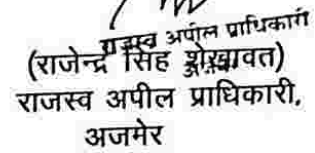 राजस्व अपील प्राधिकारी
(राजेन्द्र सिंह शेखावत)
राजस्व अपील प्राधिकारी,
अजमेर